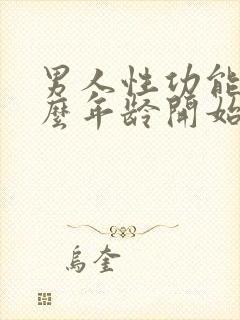 男人性功能
麼年龄開始
烏奎